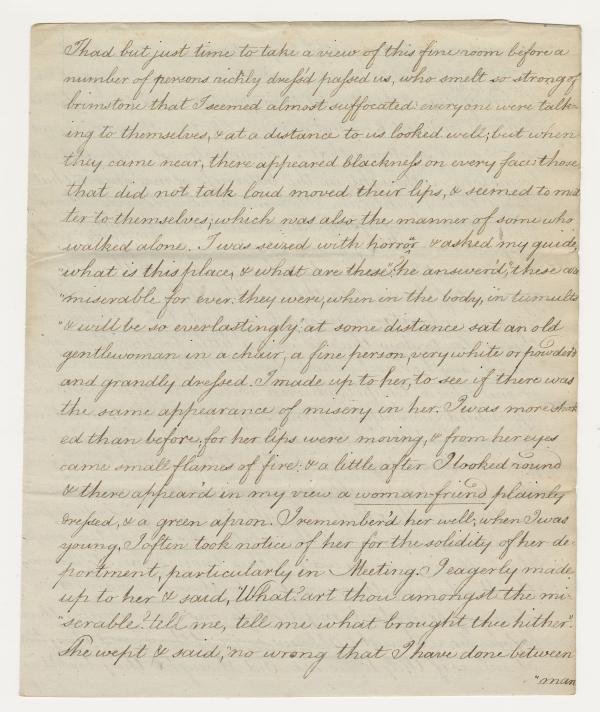 I had but just time to take a view of this fine room before a
number of persons richly dress'd passed us, who smelt so strong of
brimstone that I seemed almost suffocated: every one were talk-
ing to themselves, & at a distance to us looked well; but when
they came near, there appeared blackness on every face: those
that did not talk loud moved their lips, & seemed to mut
ter to themselves; which was also the manner of some who
walked alone. I was seized with horror & asked my guide,
"what is this place, & what are these". he answer'd, "these are
"miserable for ever: they were, when in the body, in tumults
"& will be so everlastingly". at some distance sat an old
gentlewoman in a chair, a fine person, very white or powder'd
and grandly dressed. I made up to her, to see if there was
the same appearance of misery in her. I was more shock
ed than before, for her lips were moving, & from her eyes
came small flames of fire: & a little after I looked round
& there appear'd in my view a woman-friend plainly
dressed, & a green apron. I remember'd her well; when I was
young, I often took notice of her for the solidity of her de-
portment, particularly in Meeting. I eagerly made
up to her & said, "What? art thou amongst the mi-
"serable? tell me, tell me what brought thee hither".
She wept & said, "no wrong that I have done between
"man